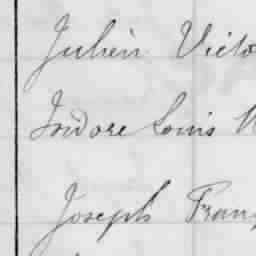 Julien Victo
Isidore Louis
Joseph Fran